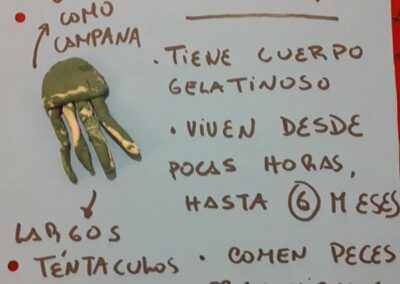 COMO
CAMPANA
• TIENE CUERPO
GELATINOSO
• VIVEN DESDE
POCAS HORAS,
HASTA 6 MESES
LARGOS
• TÉNTACULOS
• COMEN PECES